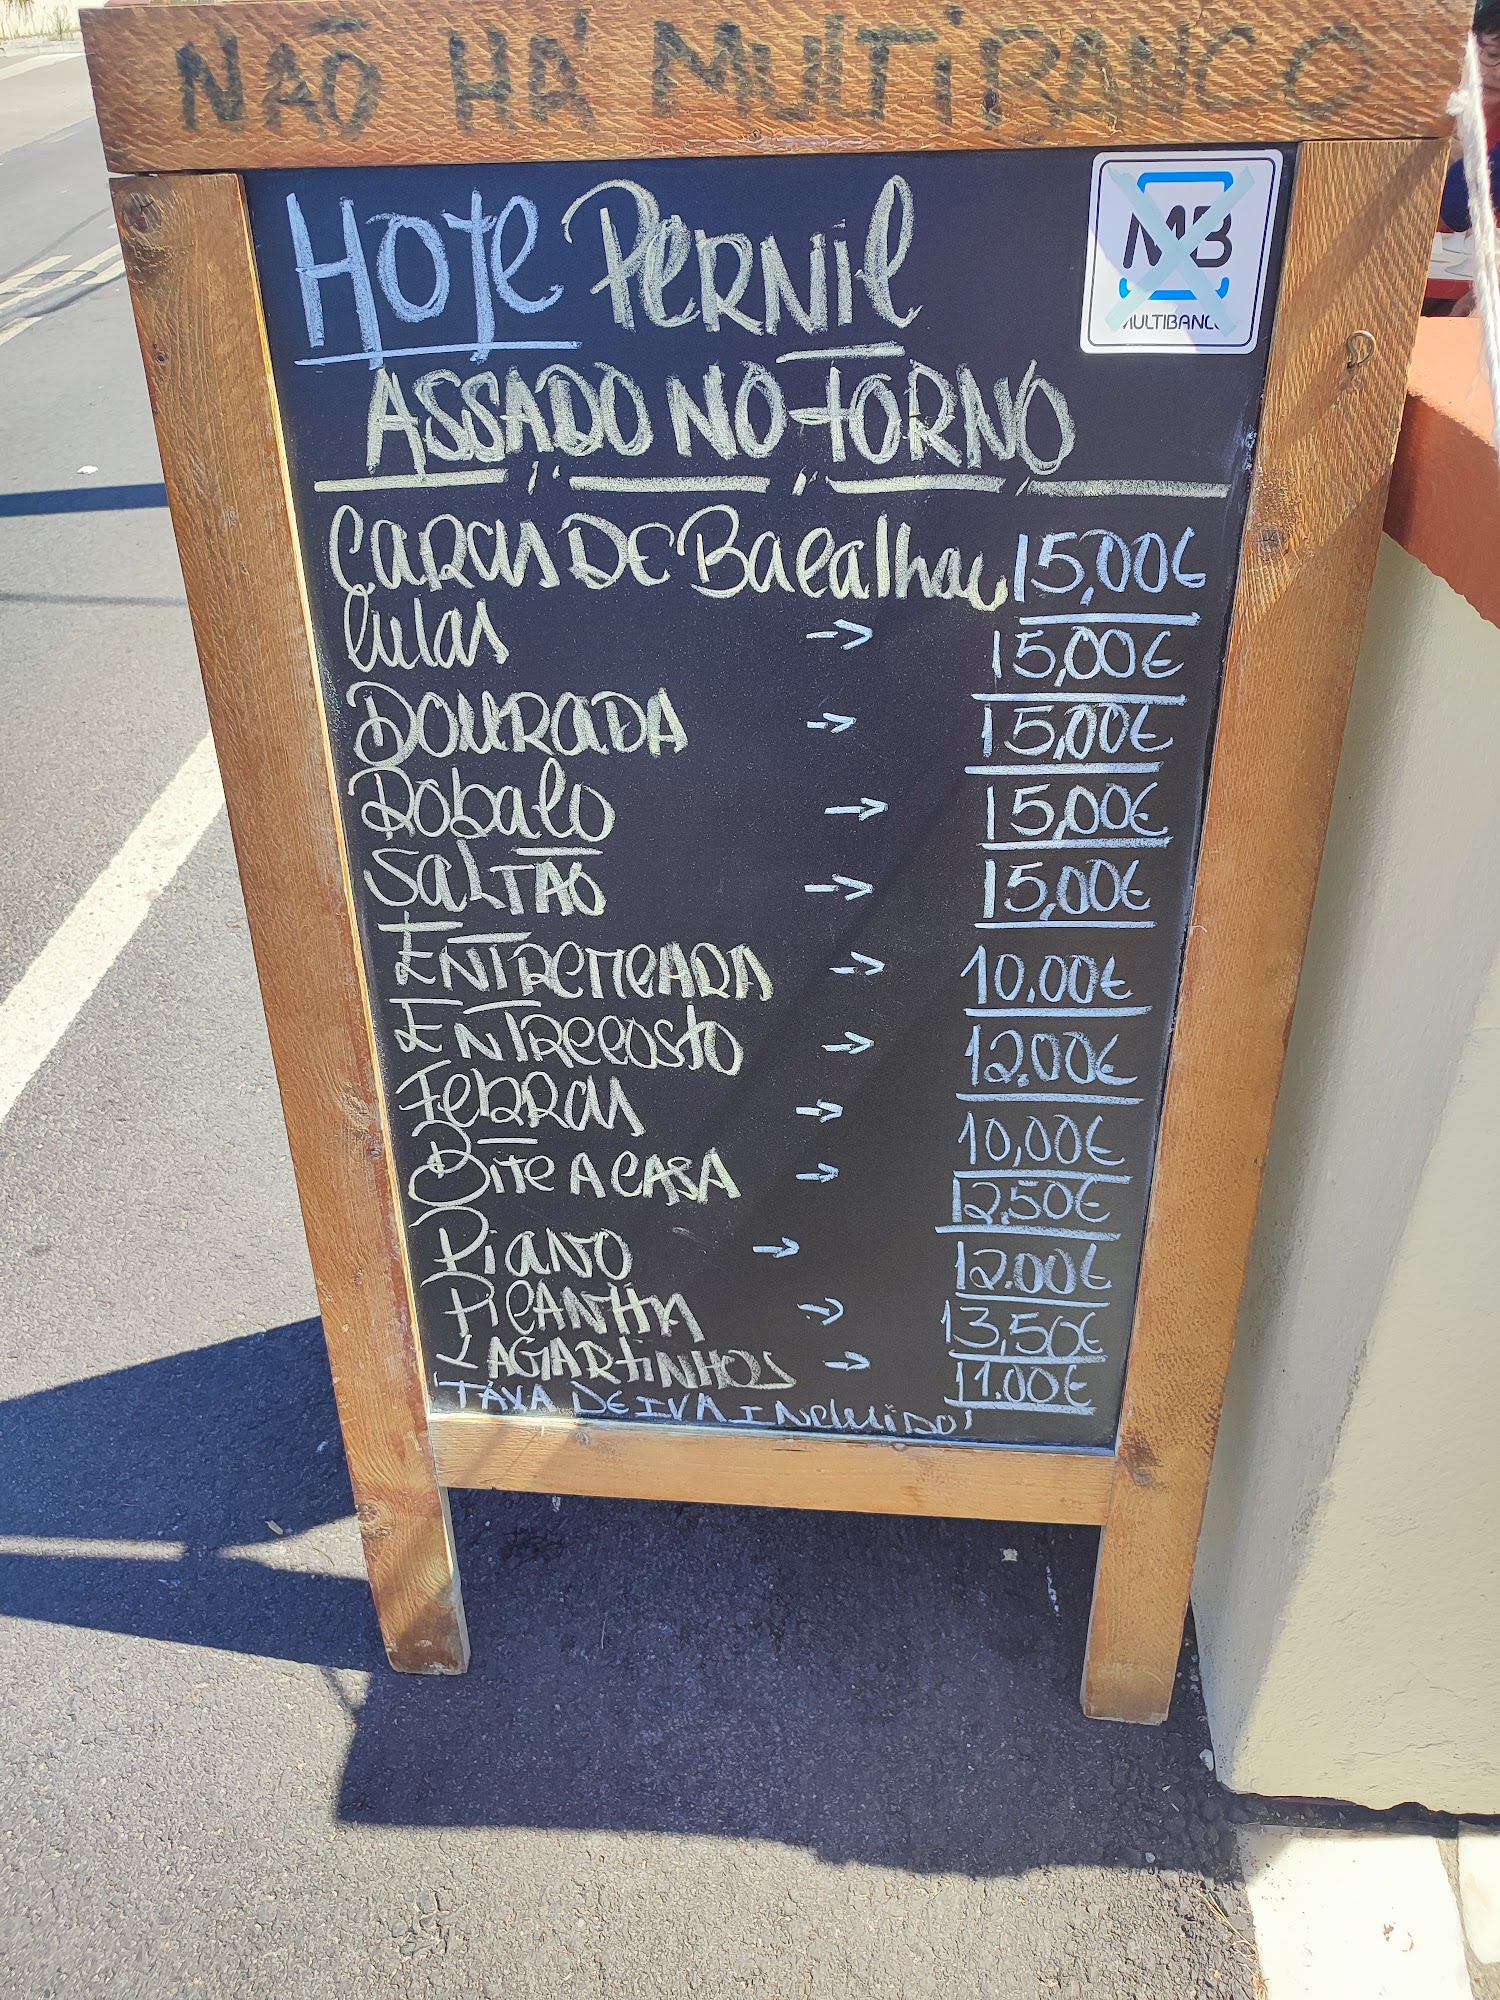 NÃO HÁ MULTIBANCO
MB
MULTIBANCO
HOJE PERNIL
ASSADO NO FORNO
CARAS DE Bacalhau 15,00€
Lulas → 15,00€
DOURADA → 15,00€
Robalo → 15,00€
SALTÃO → 15,00€
ENTREMEADA → 10,00€
ENTRECOSTO → 12,00€
Febras → 10,00€
Bife A CASA → 12,50€
Piano → 12.00€
PICANHA → 13,50€
LAGARTINHOS → 11.00€
'TAXA DE IVA INCLUIDO'